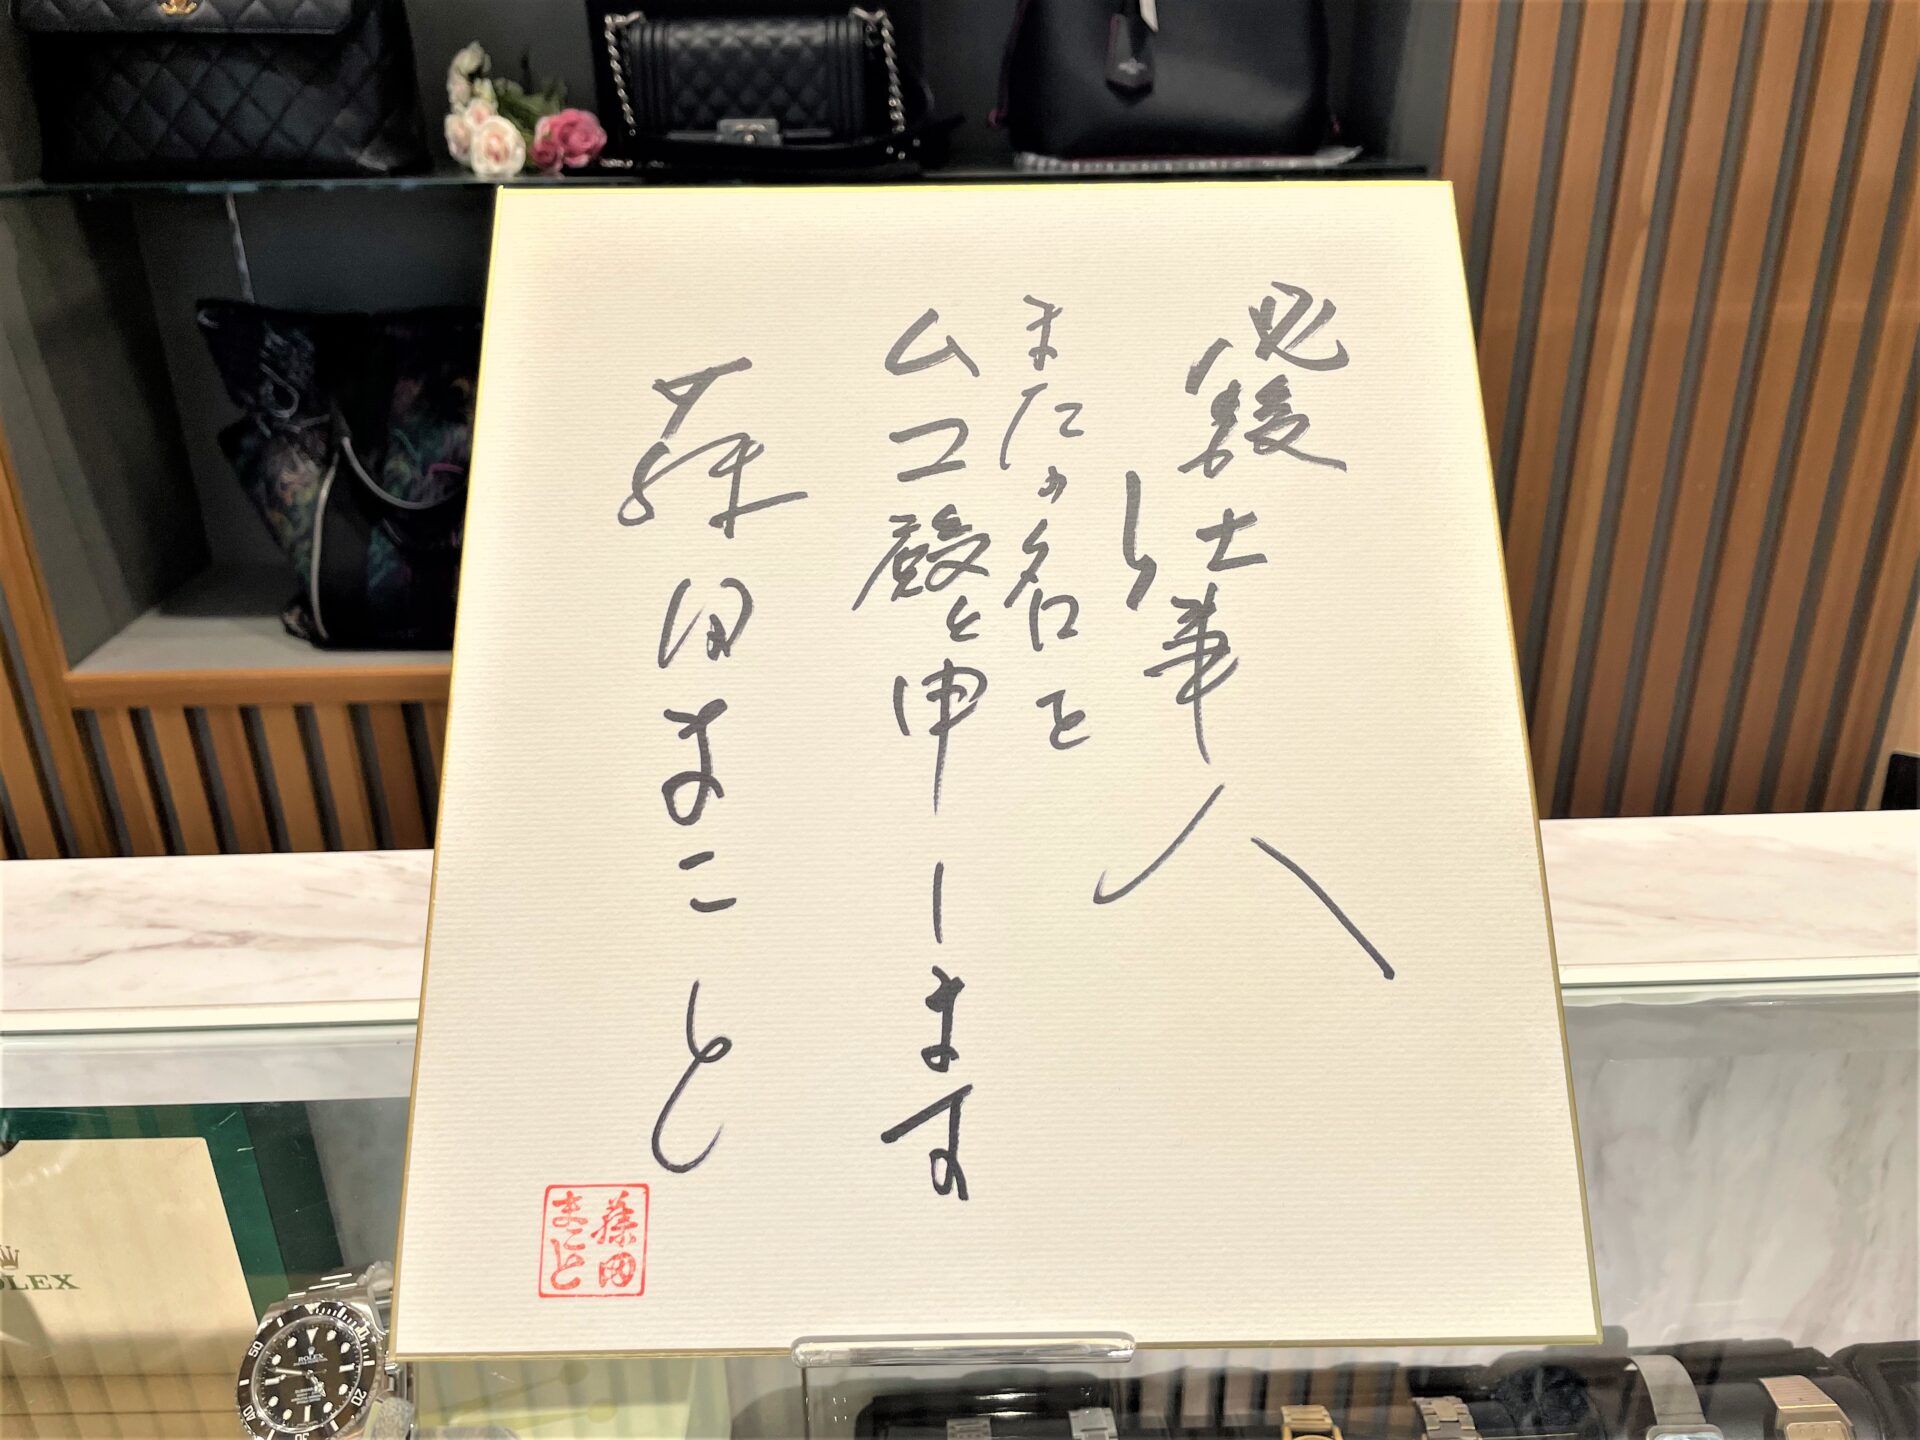 必殺仕事人
またの名を
ムコ殿と申します
藤田まこと
藤田
まこと
OLEX
ROLEX
50
40
30
20